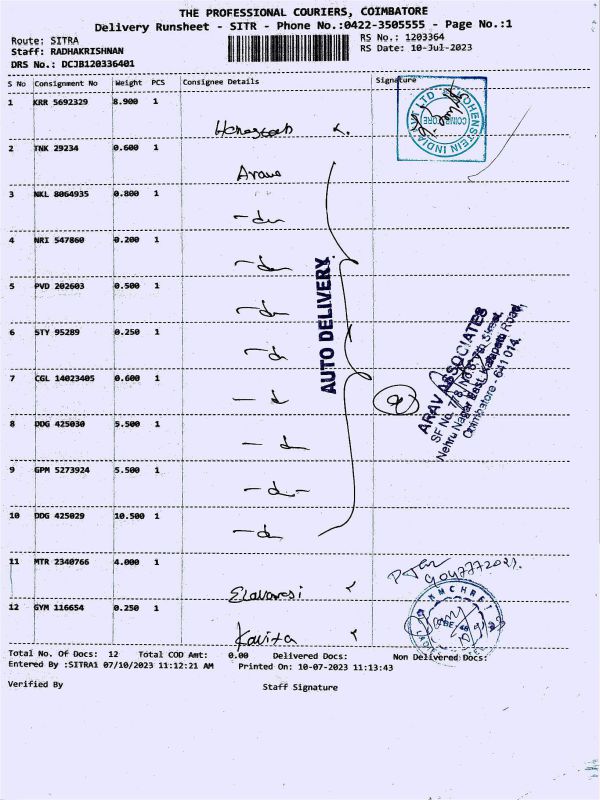 THE PROFESSIONAL COURIERS, COIMBATORE
Delivery Runsheet - SITR - Phone No.:0422-3505555 - Page No.:1
Route: SITRA
Staff: RADHAKRISHNAN
DRS No.: DCJB120336401
RS No.: 1203364
RS Date: 10-Jul-2023
S No Consignment No Weight PCS Consignee Details Signature
1 KRR 5692329 8.900 1
2 TNK 29234 0.600 1
3 NKL 8064935 0.800 1
4 NRI 547860 0.200 1
5 PVD 202603 0.500 1
6 STY 95289 0.250 1
7 CGL 14023405 0.600 1
8 DDG 425030 5.500 1
9 GPM 5273924 5.500 1
10 DDG 425029 10.500 1
11 MTR 2340766 4.000 1 Elavarasi
12 GYM 116654 0.250 1 Kavitha
HOHENSTEIN INDIA PVT LTD
COIMBATORE
AUTO DELIVERY
9
ARAV ASSOCIATES
Nehru Nagar East, Kalapatti Road,
Coimbatore - 641 014.
Total No. Of Docs: 12 Total COD Amt: 0.00 Delivered Docs: Non Delivered Docs:
Entered By :SITRA1 07/10/2023 11:12:21 AM Printed On: 10-07-2023 11:13:43
Verified By Staff Signature